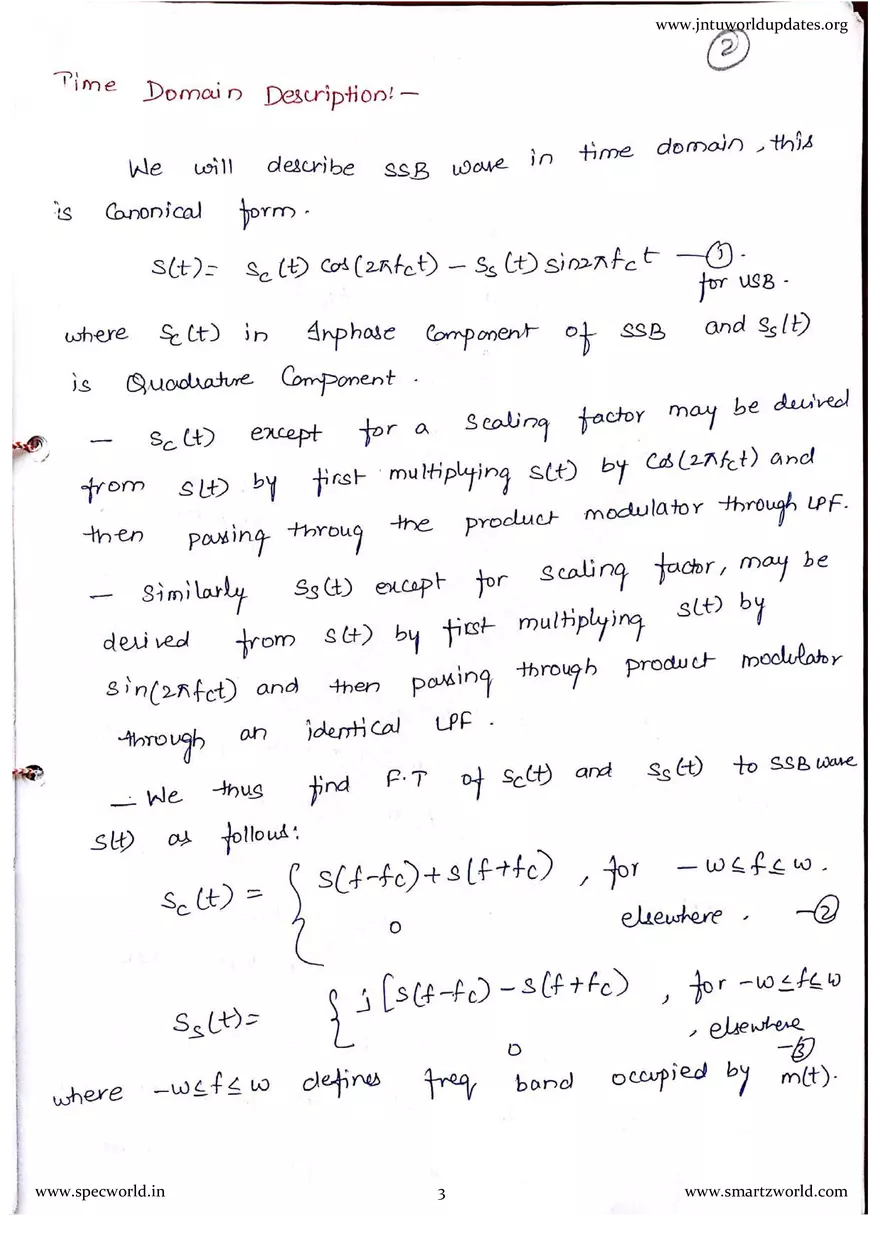 www.jntuworldupdates.org
2
Time Domain Description:-
We will describe SSB wave in time domain, this
is Canonical form.
S(t)= Sc(t) Cos(2πfct) - Ss(t) sin2πfct —①.
for USB.
where Sc(t) in Inphase Component of SSB and Ss(t)
is Quadrature Component.
- Sc(t) except for a Scaling factor may be derived
from s(t) by first multiplying s(t) by Cos(2πfct) and
then passing throug the product modulator through LPF.
- Similarly Ss(t) except for scaling factor, may be
derived from s(t) by first multiplying s(t) by
sin(2πfct) and then passing through product modulator
through an identical LPF.
- We thus find F.T of Sc(t) and Ss(t) to SSB wave
S(t) as follows:
Sc(t) = { S(f-fc)+S(f+fc) , for -w≤f≤w.
0 elsewhere. -②
Ss(t)= { j[S(f-fc)-S(f+fc) , for -w≤f≤w
0 , elsewhere
-③
where -w≤f≤w defines freq band occupied by m(t).
www.specworld.in 3 www.smartzworld.com